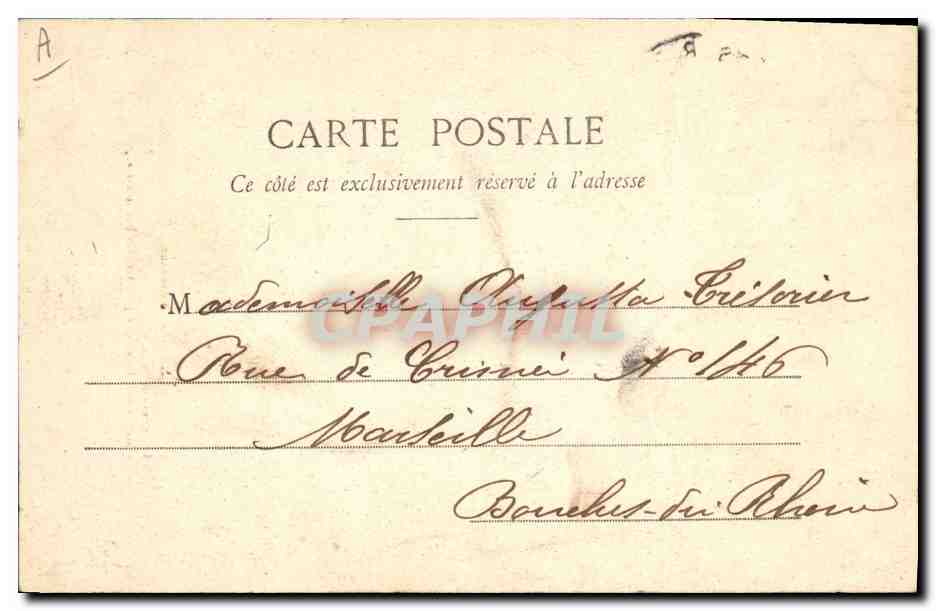 A
CARTE POSTALE
Ce côté est exclusivement réservé à l'adresse
Mademoiselle Augusta Trésorier
CPAPHIL
Rue de Crimée N° 146
Marseille
Bouches-du Rhône